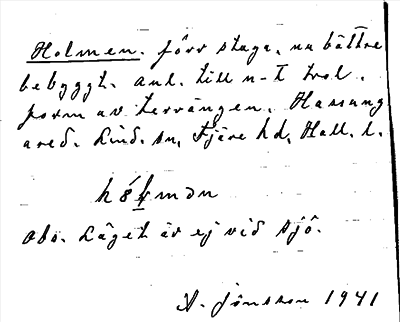 Holmen. förr stuga, nu bättre
bebyggt. Anl. till n-t trol.
form av terrängen. Hassung
ared. Lind. sn, Fjäre hd, Hall. l.
Obs. Läget är ej vid sjö.
A. Jönsson 1941